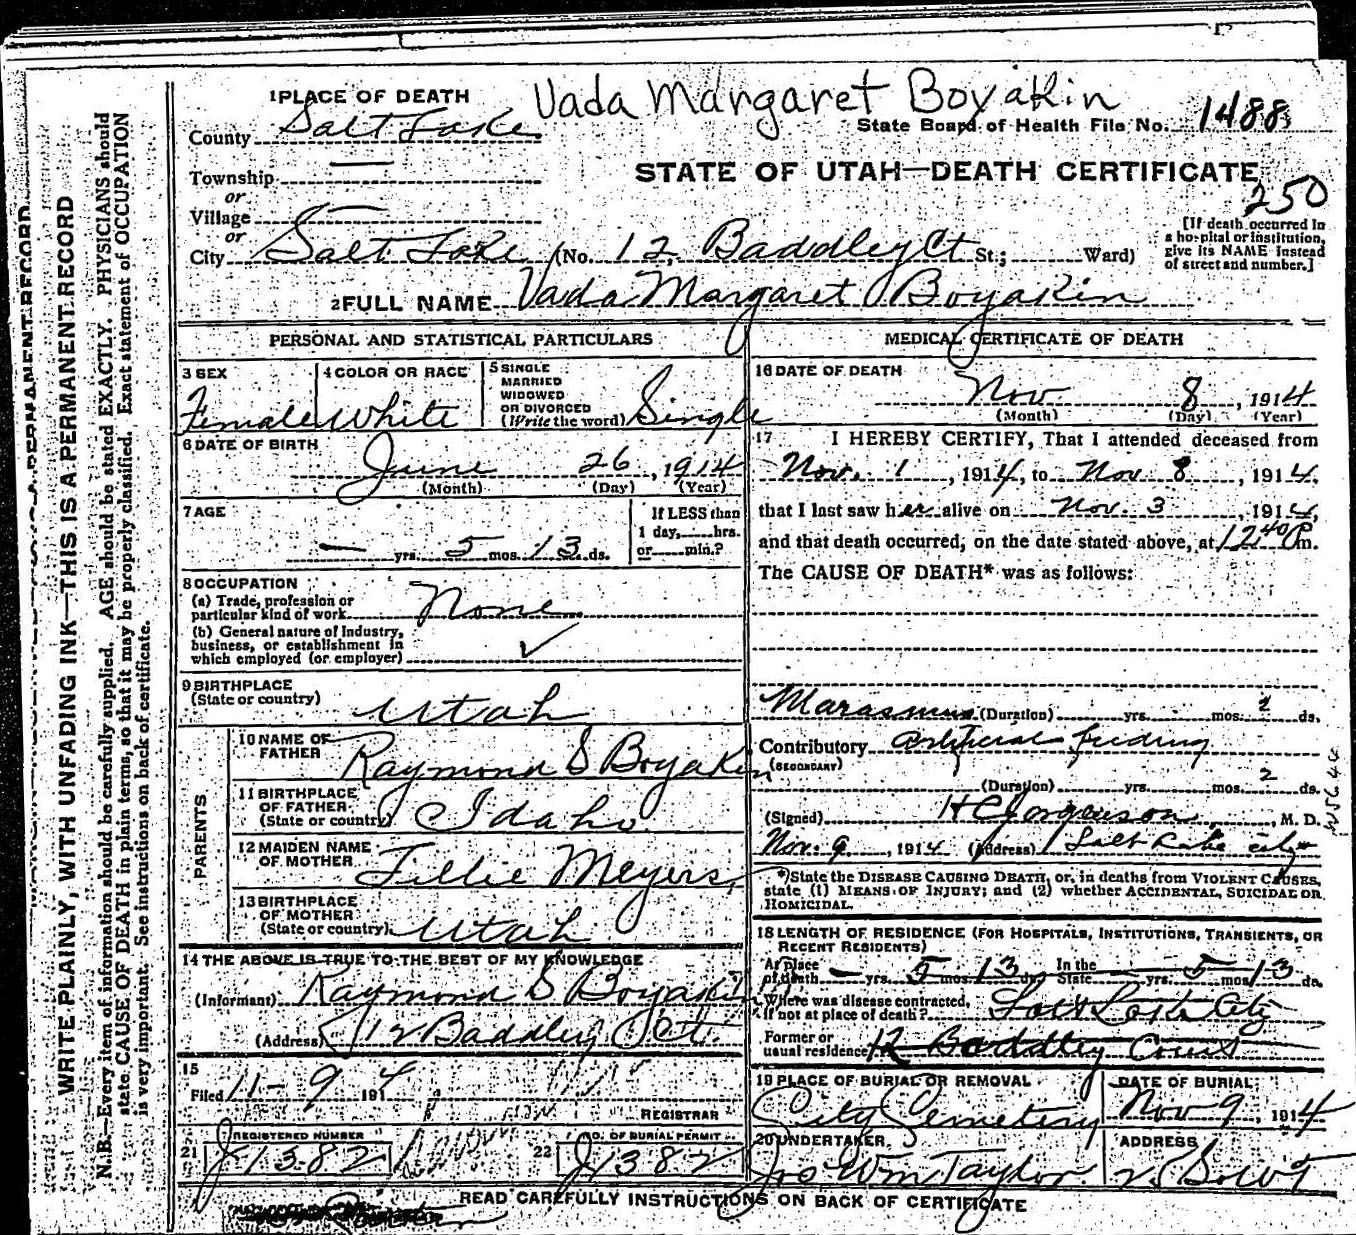 Vada Margaret Boyakin
1 PLACE OF DEATH
County Salt Lake
State Board of Health File No. 1488
Township
or
Village
or
STATE OF UTAH—DEATH CERTIFICATE
250
City Salt Lake (No. 12 Baddley Ct St.; Ward)
[If death occurred in
a hospital or institution,
give its NAME instead
of street and number.]
2 FULL NAME Vada Margaret Boyakin
PERSONAL AND STATISTICAL PARTICULARS
3 SEX
Female
4 COLOR OR RACE
White
5 SINGLE
MARRIED
WIDOWED
OR DIVORCED
(Write the word) Single
6 DATE OF BIRTH
June 26, 1914
(Month) (Day) (Year)
7 AGE
— yrs. 5 mos. 13 ds.
If LESS than
1 day, hrs.
or min.?
8 OCCUPATION
(a) Trade, profession or
particular kind of work None
(b) General nature of industry,
business, or establishment in
which employed (or employer) ✓
9 BIRTHPLACE
(State or country) Utah
PARENTS
10 NAME OF
FATHER Raymond S Boyakin
11 BIRTHPLACE
OF FATHER
(State or country) Idaho
12 MAIDEN NAME
OF MOTHER Tillie Meyers
13 BIRTHPLACE
OF MOTHER
(State or country) Utah
14 THE ABOVE IS TRUE TO THE BEST OF MY KNOWLEDGE
(Informant) Raymond S Boyakin
(Address) 12 Baddley Ct.
15
Filed 11-9 1914
REGISTRAR
21 REGISTERED NUMBER
J1382
22 NO. OF BURIAL PERMIT
J1382
MEDICAL CERTIFICATE OF DEATH
16 DATE OF DEATH
Nov 8, 1914
(Month) (Day) (Year)
17 I HEREBY CERTIFY, That I attended deceased from
Nov. 1, 1914, to Nov 8, 1914,
that I last saw her alive on Nov. 3, 1914,
and that death occurred, on the date stated above, at 12 40 P m.
The CAUSE OF DEATH* was as follows:
Marasmus (Duration) yrs. mos. 2 ds.
Contributory Artificial feeding
(SECONDARY)
(Duration) yrs. mos. 2 ds.
(Signed) H C Jorgenson, M. D.
Nov. 9, 1914 (Address) Salt Lake City
*State the DISEASE CAUSING DEATH, or, in deaths from VIOLENT CAUSES,
state (1) MEANS OF INJURY; and (2) whether ACCIDENTAL, SUICIDAL OR
HOMICIDAL.
18 LENGTH OF RESIDENCE (FOR HOSPITALS, INSTITUTIONS, TRANSIENTS, OR
RECENT RESIDENTS)
At place
of death — yrs. 5 mos. 13 ds. In the
State yrs. 5 mos. 13 ds.
Where was disease contracted,
if not at place of death? Salt Lake City
Former or
usual residence 12 Baddley Court
19 PLACE OF BURIAL OR REMOVAL
City Cemetery
DATE OF BURIAL
Nov 9, 1914
20 UNDERTAKER
Jos Wm Taylor
ADDRESS
READ CAREFULLY INSTRUCTIONS ON BACK OF CERTIFICATE
WRITE PLAINLY, WITH UNFADING INK—THIS IS A PERMANENT RECORD
N. B.—Every item of information should be carefully supplied. AGE should be stated EXACTLY. PHYSICIANS should
state CAUSE OF DEATH in plain terms, so that it may be properly classified. Exact statement of OCCUPATION
is very important. See instructions on back of certificate.